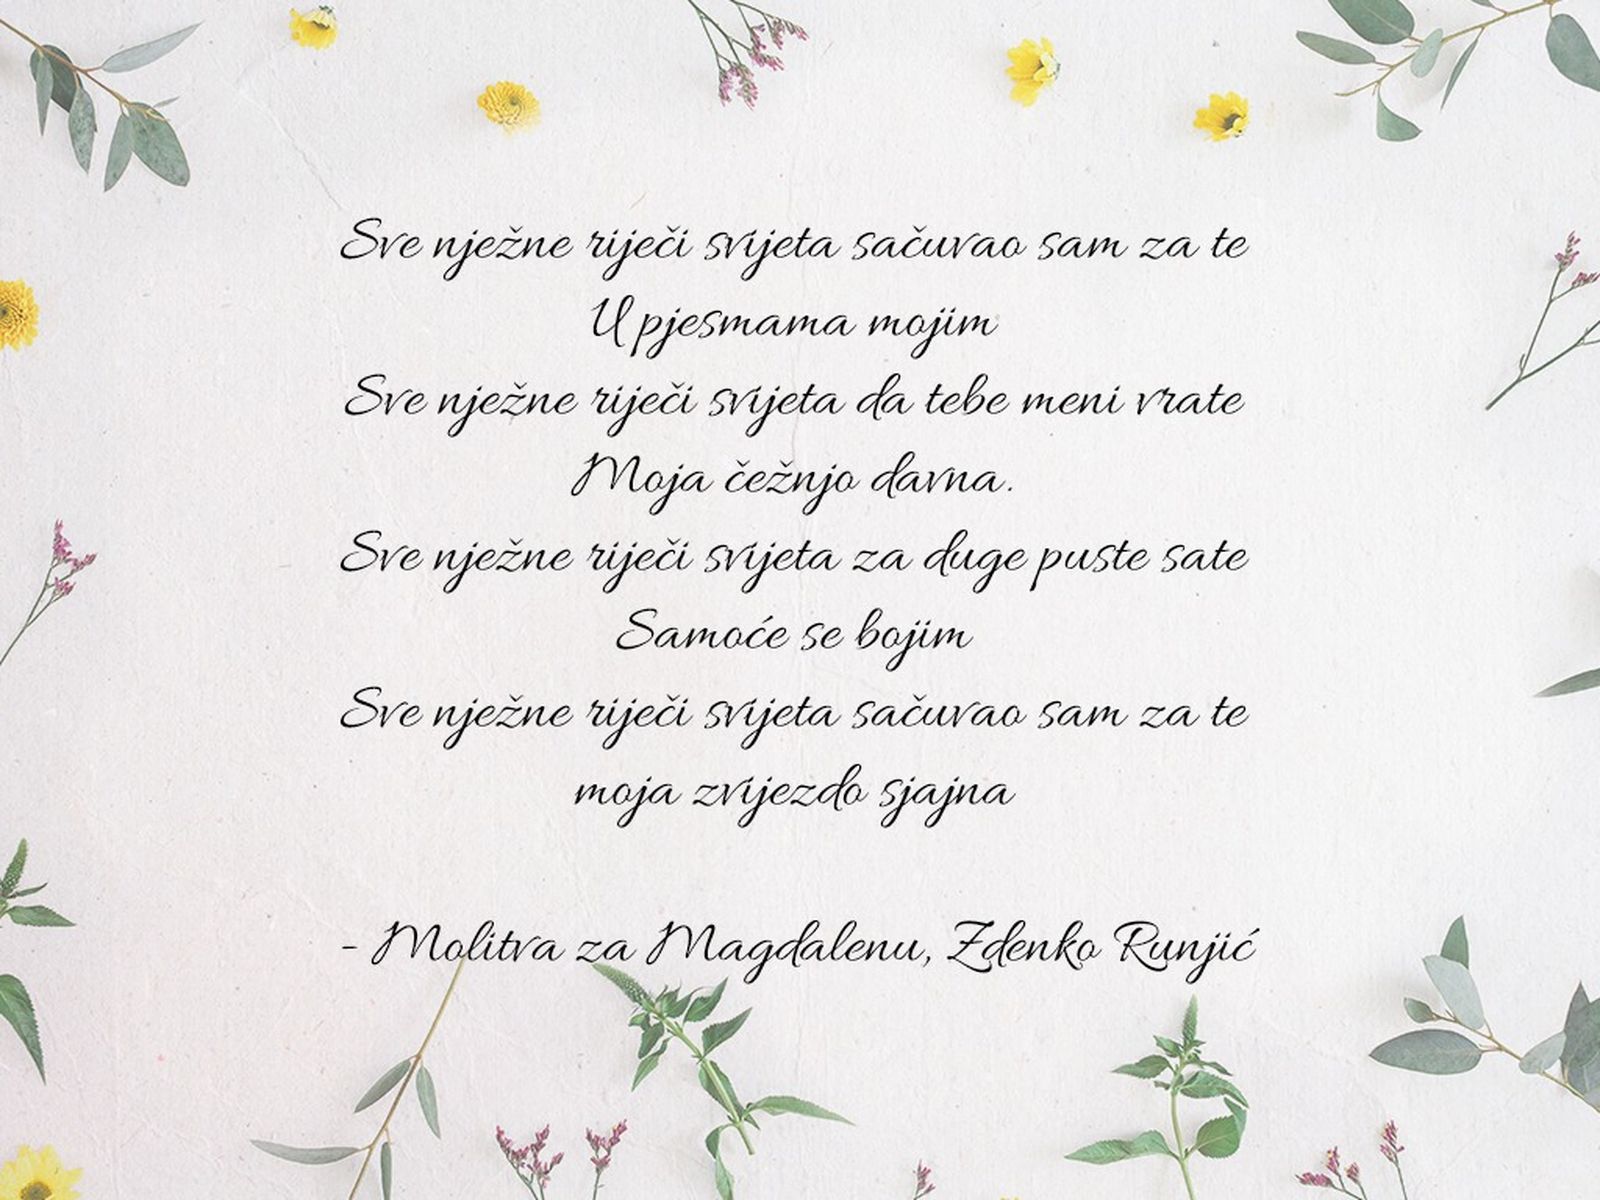 Sve nježne riječi svijeta sačuvao sam za te
U pjesmama mojim
Sve nježne riječi svijeta da tebe meni vrate
Moja čežnjo davna.
Sve nježne riječi svijeta za duge puste sate
Samoće se bojim
Sve nježne riječi svijeta sačuvao sam za te
moja zvijezdo sjajna
- Molitva za Magdalenu, Zdenko Runjić